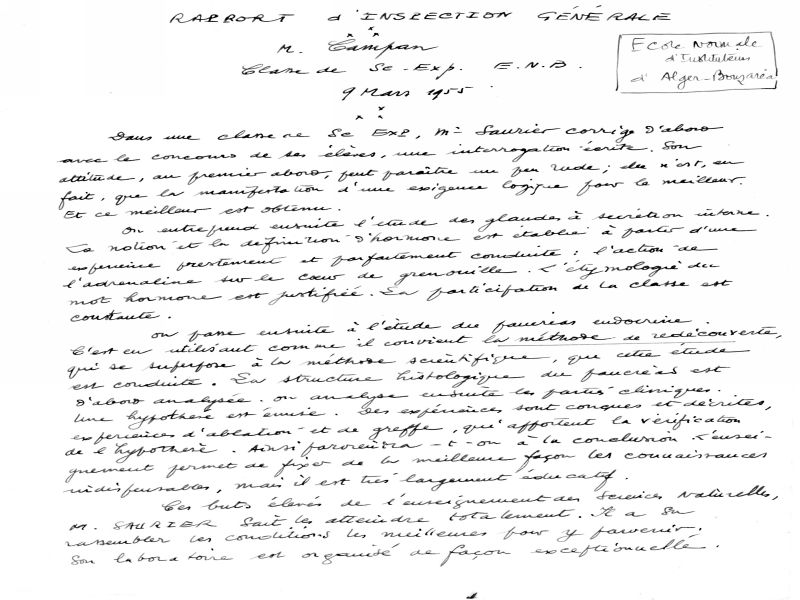 RAPPORT d'INSPECTION GÉNÉRALE
M. Campan
Classe de Sc-Exp. E.N.B.
9 Mars 1955
Ecole Normale
d'Instituteurs
d'Alger-Bouzaréa
Dans une classe de Sc Exp, Mr Saurier corrige d'abord
avec le concours de ses élèves, une interrogation écrite. Son
attitude, au premier abord, peut paraître un peu rude ; elle n'est, en
fait, que la manifestation d'une exigence logique pour le meilleur.
Et ce meilleur est obtenu.
On entreprend ensuite l'étude des glandes à secrétion interne.
La notion et la définition d'hormone est établie à partir d'une
expérience prestement et parfaitement conduite : l'action de
l'adrénaline sur le cœur de grenouille. L'étymologie du
mot hormone est justifiée. La participation de la classe est
constante.
On passe ensuite à l'étude du pancréas endocrine.
C'est en utilisant comme il convient la méthode de redécouverte,
qui se superpose à la méthode scientifique, que cette étude
est conduite. La structure histologique du pancréas est
d'abord analysée. On analyse ensuite les parties cliniques.
Une hypothèse est émise. Des expériences sont conçues et décrites,
expériences d'ablation et de greffe, qu'apportent la vérification
de l'hypothèse. Ainsi parviendra-t-on à la conclusion. L'ensei-
gnement permet de fixer de la meilleure façon les connaissances
indispensables, mais il est très largement éducatif.
Ces buts élevés de l'enseignement des Sciences Naturelles,
M. SAURIER sait les atteindre totalement. Il a su
rassembler les conditions les meilleures pour y parvenir.
Son laboratoire est organisé de façon exceptionnelle.